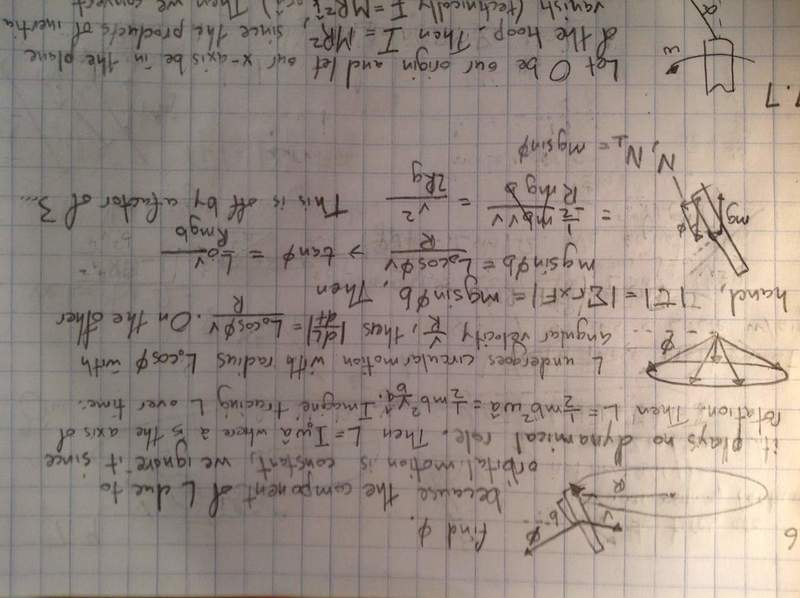 6
find φ.
because the component of L due to
orbital motion is constant, we ignore it since
it plays no dynamical role. Then L = I₀ωâ where a is the axis of
rotation. Then L = ½mb²ωâ = ½mb² v/b â. Imagine tracing L over time:
L undergoes circular motion with radius L₀cosφ with
angular velocity v/R, thus, |dL/dt| = L₀cosφv/R. On the other
hand, |τ| = |Σr×F| = mg sinφ b. Then,
mg sinφ b = L₀cosφv/R → tanφ = L₀v/Rmgb
= ½mbvv/Rmgb = v²/2Rg This is off by a factor of 3...
N⊥ = mg sinφ
φ
v
b
R
φ
mg
φ
N, 
7.7
Let O be our origin and let our x-axis be in the plane
of the hoop. Then I = MR², since the products of inertia
vanish (technically I = MR²
Then we convert
ω
α